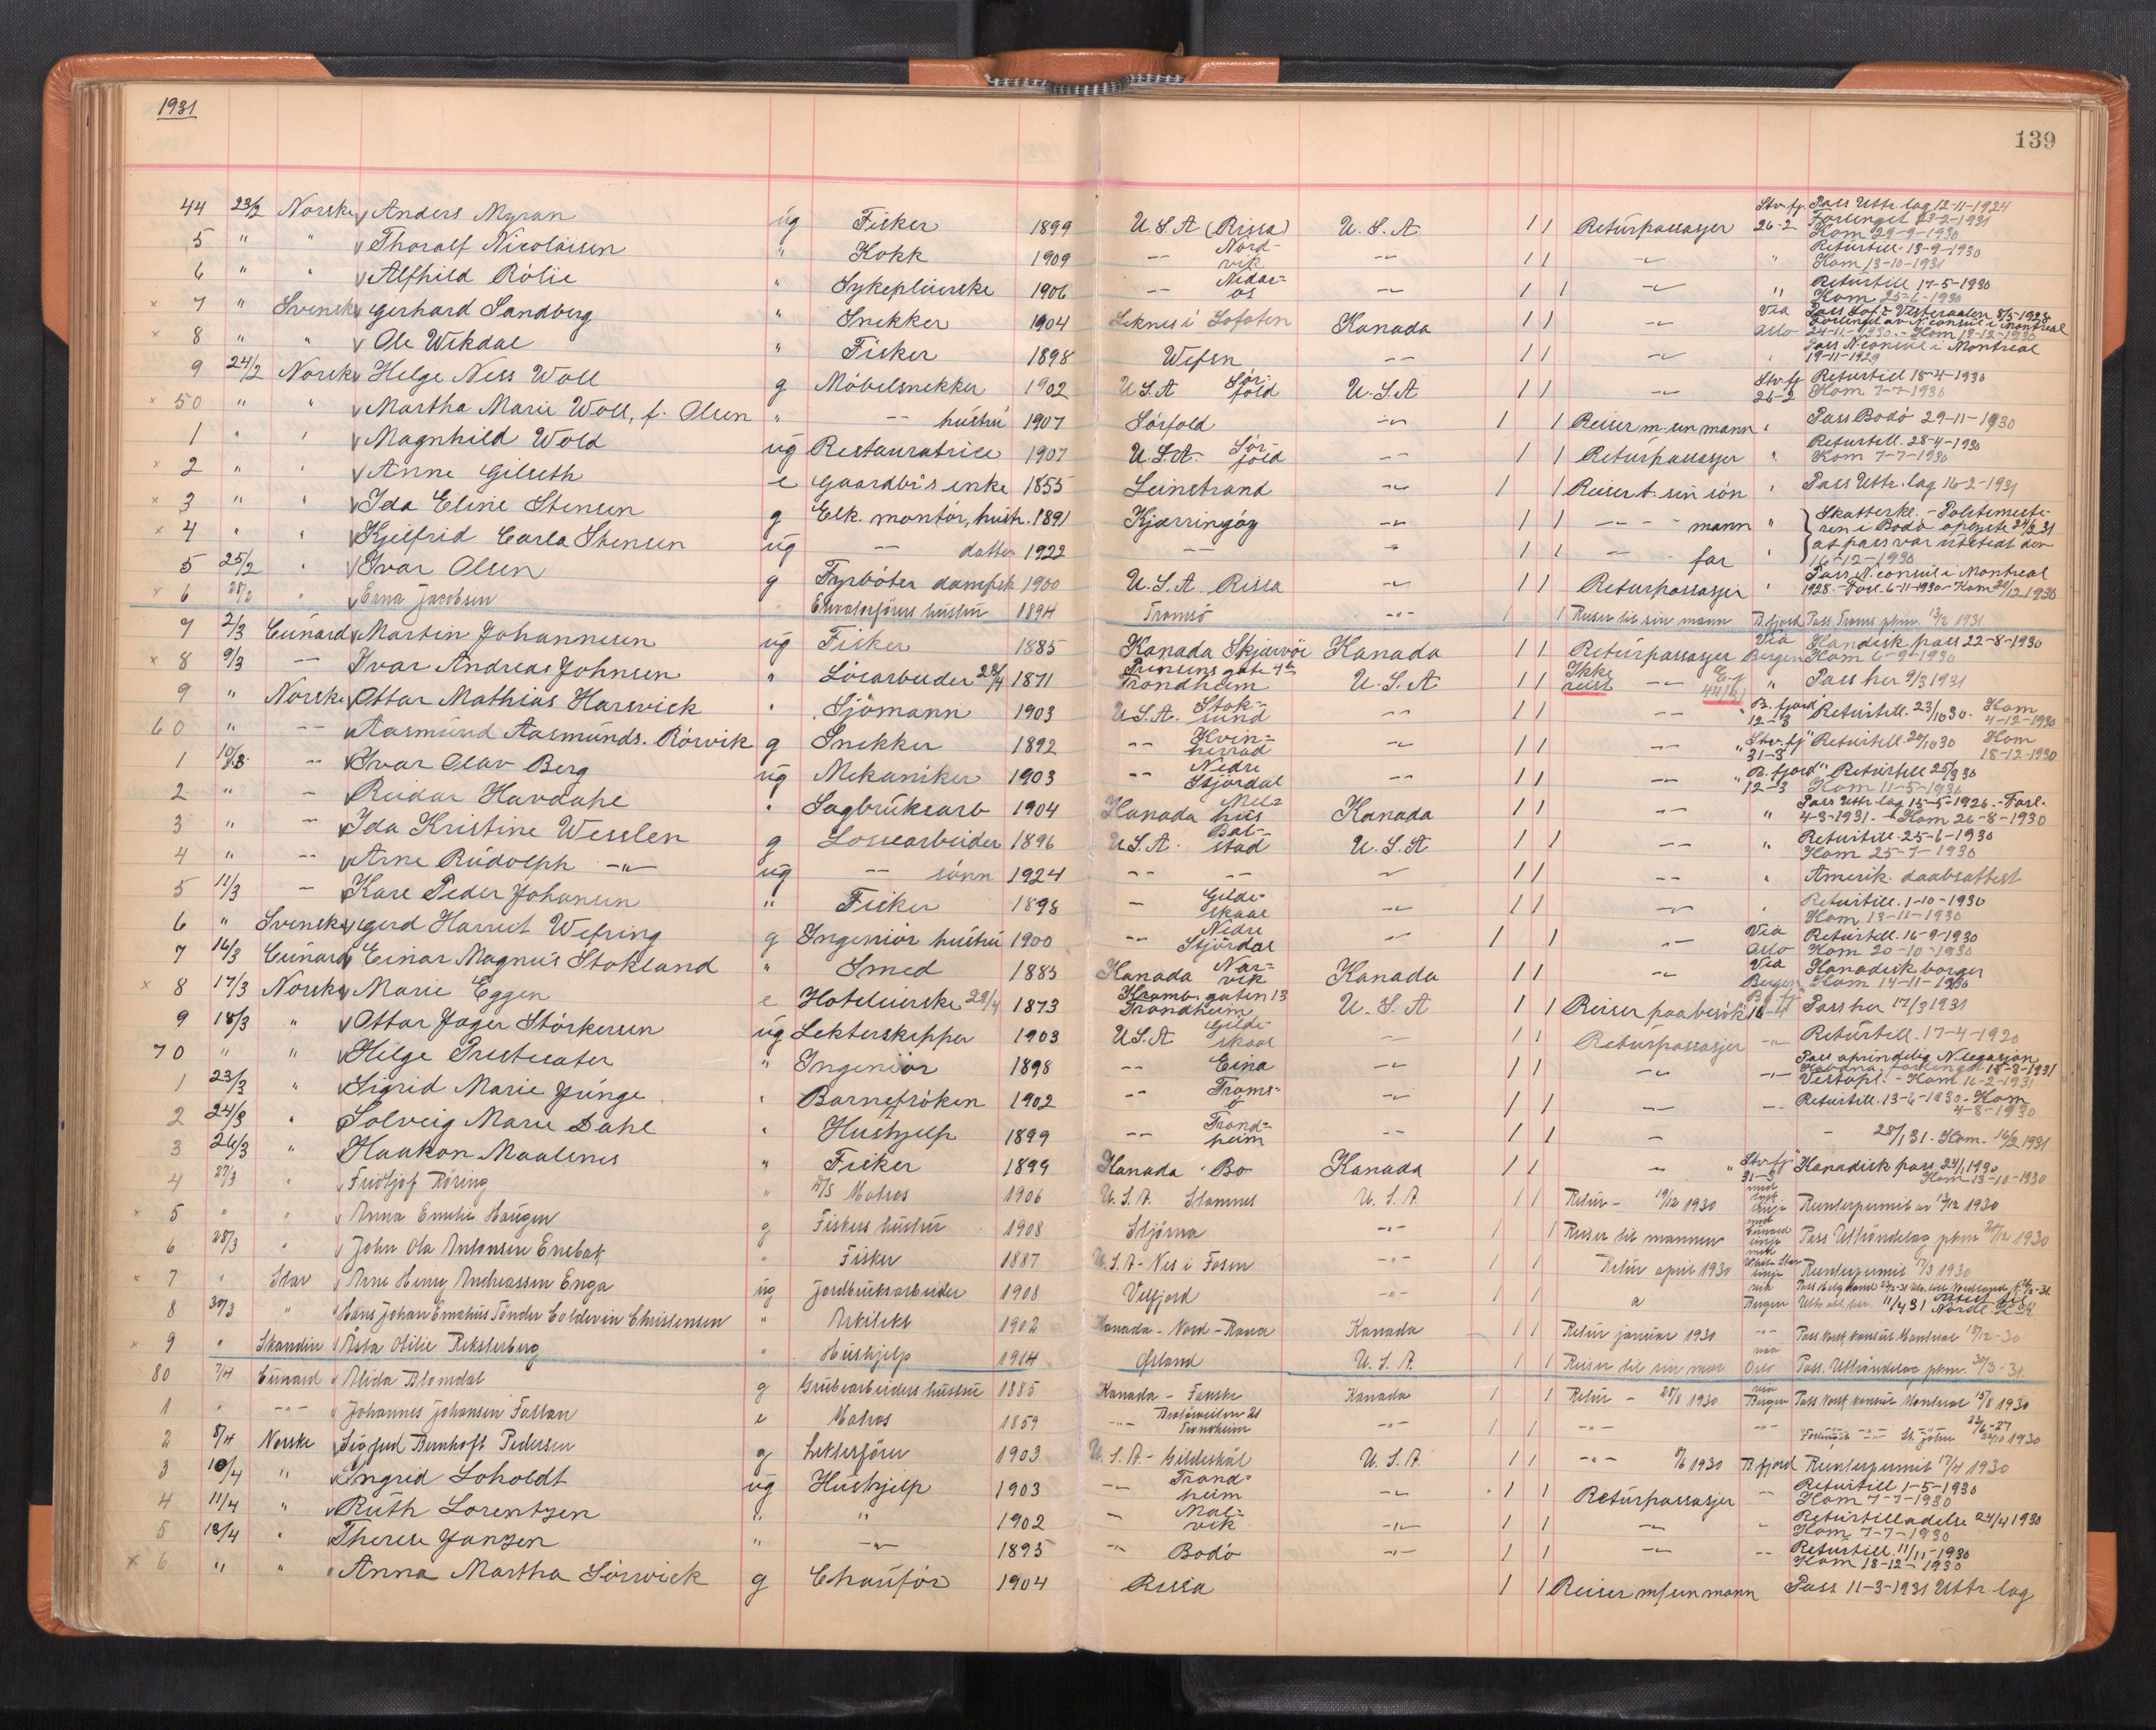 1931
139
44 23/2 Norske Anders Myran ug Fisker 1899 U.S.A (Rissa) U.S.A 1 1 Returpassasjer Stv.fj. 26-2 Pass Uttr.lag 12-11-1924 Forlenget 23-2-1931 Kom 29-9-1930
5 " " Thoralf Nicolaisen " Kokk 1909 -"- Nordvik -"- 1 1 -"- " Returtill. 13-9-1930 Kom 13-10-1931
6 " " Alfhild Rölie " Sykepleierske 1906 -"- Nidaros -"- 1 1 -"- " Returtill 17-5-1930 Kom 25-6-1930
× 7 " Svenske Gerhard Sandberg " Snekker 1904 Leknes i Lofoten Kanada 1 1 -"- Via Oslo Pass Lof. & Vesteraalen 8/5-1928 Forlenget av N.consul i Montreal 24-11-1930. - Kom 19-12-1930
× 8 " " Ole Wikdal " Fisker 1898 Wefsn -"- 1 1 -"- " Pass N.consul i Montreal 19-11-1929
9 24/2 Norske Helge Ness Woll g Möbelsnekker 1902 U.S.A Sörfold U.S.A 1 1 -"- Stv.fj 26-2 Returtill 18-4-1930 Kom 7-7-1930
× 50 " " Martha Marie Woll, f. Olsen " -"- hustru 1907 Sörfold -"- 1 1 Reiser m. sin mann " Pass Bodö 29-11-1930
1 " " Magnhild Wold ug Restauratrice 1907 U.S.A. Sörfold -"- 1 1 Returpassasjer " Returtill. 28-4-1930 Kom 7-7-1930
× 2 " " Anne Gilseth e Gaardbr's enke 1855 Leinstrand -"- 1 1 Reiser t. sin sön " Pass Uttr.lag 16-2-1931
× 3 " " Ida Eline Stensen g Elk. montör, hustr. 1891 Kjærringöy -"- 1 1 -"- mann " Skatterkl. - Politimesteren i Bodö oplyste 24/2 31
× 4 " " Kjellfrid Carla Stensen ug -"- datter 1922 -"- -"- 1 1 -"- far " at pass var utstedt den 16-12-1930
5 25/2 " Ivar Olsen g Fyrböter dampsk 1900 U.S.A. Rissa -"- 1 1 Returpassasjer " Pass N.consul i Montreal 1928. - Forl. 6-11-1930 - Kom 20/12 1930
× 6 28/2 " Erna Jacobsen " hustru 1894 Tromsö -"- 1 1 Reiser til sin mann B.fjord Pass Troms pkm. 13/2 1931
7 2/3 Cunard Martin Johannesen ug Fisker 1885 Kanada Skjærvöi Kanada 1 1 Returpassasjer Via Bergen Kanadisk pass 22-8-1930 Kom 6-9-1930
× 8 9/3 -"- Ivar Andreas Johnsen " Lösarbeider 28/4 1871 Prinsens gate 4b Trondheim U.S.A 1 1 Ikke reist -"- " Pass her 9/3 1931
9 " Norske Ottar Mathias Harsvick " Sjömann 1903 U.S.A. Stoksund -"- 1 1 -"- B.fjord 12-3 Returtill. 23/10 30. Kom 4-12-1930
60 " -"- Aasmund Aasmunds. Rörvik g Snekker 1892 -"- Kvinherrad -"- 1 1 -"- "Stv.fj" 31-3 Returtill. 20/10 30 Kom 18-12-1930
1 10/3 -"- Ivar Olav Berg ug Mekaniker 1903 -"- Nedre Stjördal -"- 1 1 -"- "B.fjord" 12-3 Returtill 25/3 30 Kom 11-5-1930
2 " -"- Reidar Havdahl " Sagbruksarb 1904 Kanada Melhus Kanada 1 1 -"- " Pass Uttr.lag 15-5-1926. - Forl. 4-3-1931. - Kom 26-8-1930
3 " -"- Ida Kristine Wesslen g Lossearbeider 1896 U.S.A. Balstad U.S.A 1 1 -"- " Returtill. 25-6-1930 Kom 25-7-1930
4 " -"- Arne Rudolph -"- ug -"- sönn 1924 -"- -"- -"- 1 1 -"- " Amerik. daabsattest
5 11/3 -"- Kare Peder Johansen " Fisker 1898 -"- Gildeskaal -"- 1 1 -"- " Returtill. 1-10-1930 Kom 13-11-1930
6 " Svenske Gerd Harriet Wefring g Ingeniör hustru 1900 -"- Nedre Stjördal -"- 1 1 -"- Via Oslo Returtill. 16-9-1930 Kom 20-10-1930
7 16/3 Cunard Einar Magnus Stokland " Smed 1883 Kanada Narvik Kanada 1 1 -"- Via Bergen Kanadisk borger Kom 14-11-1930
× 8 17/3 Norske Marie Eggen e Hoteleierske 29/4 1873 Krambugaten 13 Trondheim U.S.A 1 1 Reiser paa besök 16-4 Pass her 17/3 1931
9 18/3 " Ottar Jager Störkersen ug Lekterskipper 1903 U.S.A Gildeskaal -"- 1 1 Returpassasjer -"- Returtill. 17-4-1920
70 " " Helge Prestsæter " Ingeniör 1898 -"- Eina -"- 1 1 -"- -"- Pass oprindelig N.legasjon Havana, forlenget 18-3-1931 Vestopl. - Kom 16-2-1931
1 23/3 " Sigrid Marie Junge " Barnefröken 1902 -"- Tromsö -"- 1 1 -"- -"- Returtill. 13-6-1930 - Kom 4-8-1930
2 24/3 " Solveig Marie Dahl " Hushjelp 1899 -"- Trondheim -"- 1 1 -"- 28/1 31. Kom. 16/2 1931
3 26/3 " Haakon Maalsnes " Fisker 1899 Kanada Bo Kanada 1 1 -"- "Stv.fj" 31-3 Kanadisk pass 24/1 1930 Kom 13-10-1930
4 27/3 " Fridtjof Röring " D/S Matros 1906 U.S.A. Stamnes U.S.A. 1 1 Retur - 19/12 1930 Reenterpermit av 13/12 1930
× 5 " " Anna Emelie Haugen g Fiskers hustru 1908 Stjörna -"- 1 1 Reiser til mannen Pass Uttröndelag pkm 20/12 1930
6 28/3 " John Ola Antonsen Enebak " Fisker 1887 U.S.A - Nes i Fosen -"- 1 1 Retur april 1930 Reenterpermit 17/3 1930
× 7 " Star Arne Henry Andreassen Enga ug Jordbruksarbeider 1908 Velfjord -"- 1 1 Bergen
8 30/3 " Hans Johan Emahus Tönder Coldevin Christensen " Arkitekt 1902 Kanada - Nord-Rana Kanada 1 1 Retur januar 1930 -"- Pass norsk konsul Montreal 18/12-30
× 9 " Skandin Asta Otilie Reksterberg " Hushjelp 1914 Örland U.S.A. 1 1 Reiser til sin mor via Oslo Pass. Uttröndelag pkm. 30/3-31.
80 7/4 Cunard Alida Blomdal g Grubearbeiders hustru 1885 Kanada - Fauske Kanada 1 1 Retur - 28/8 1930 via Bergen Pass norsk konsul Montreal 15/8 1930
1 " -"- Johannes Johansen Fallan e Matros 1859 -"- Trondheim -"- 1 1 -"- -"- St. John
2 8/4 Norske Sigfred Bernhoft Pedersen g Lekterförer 1903 U.S.A - Gildeskål U.S.A. 1 1 -"- 1930 B.fjord Reenterpermit 17/4 1930
3 10/4 " Ingrid Loholdt ug Hushjelp 1903 -"- Trondheim -"- 1 1 Returpassasjer -"- Returtill 1-5-1930 Kom 7-7-1930
4 11/4 " Ruth Lorentzen " " 1902 -"- Malvik -"- 1 1 -"- -"- Returtilladelse 24/4 1930 Kom 7-7-1930
5 13/4 " Therese Janzen " -"- 1895 -"- Bodö -"- 1 1 -"- -"- Returtill. 11/11-1930 Kom 18-12-1930
× 6 " " Anna Martha Sörwick g Chauför 1904 Rissa 1 1 Reiser m/sin mann Pass 11-3-1931 Uttr.lag